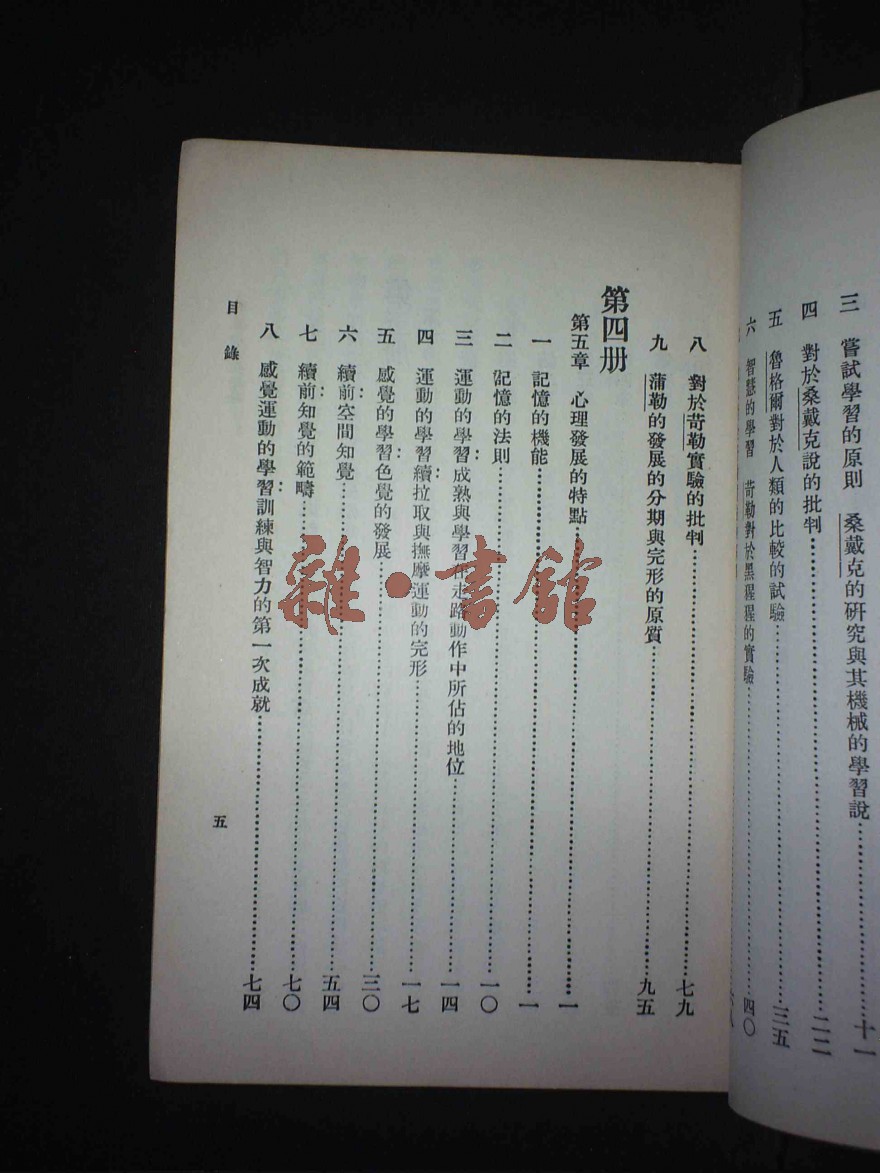 三　嘗試學習的原則　桑戴克的研究與其機械的學習說……十一
四　對於桑戴克說的批判……二二
五　魯格爾對於人類的比較的試驗……三五
六　智慧的學習　苛勒對於黑猩猩的實驗……四〇
八　對於苛勒實驗的批判……七九
九　蒲勒的發展的分期與完形的原質……九五
第四册
第五章　心理發展的特點……一
一　記憶的機能……一
二　記憶的法則……一〇
三　運動的學習：成熟與學習在走路動作中所佔的地位……一四
四　運動的學習續：拉取與撫摩運動的完形……一七
五　感覺的學習：色覺的發展……三〇
六　續前：空間知覺……五四
七　續前：知覺的範疇……七〇
八　感覺運動的學習：訓練與智力的第一次成就……七四
目錄
五
雜·書館